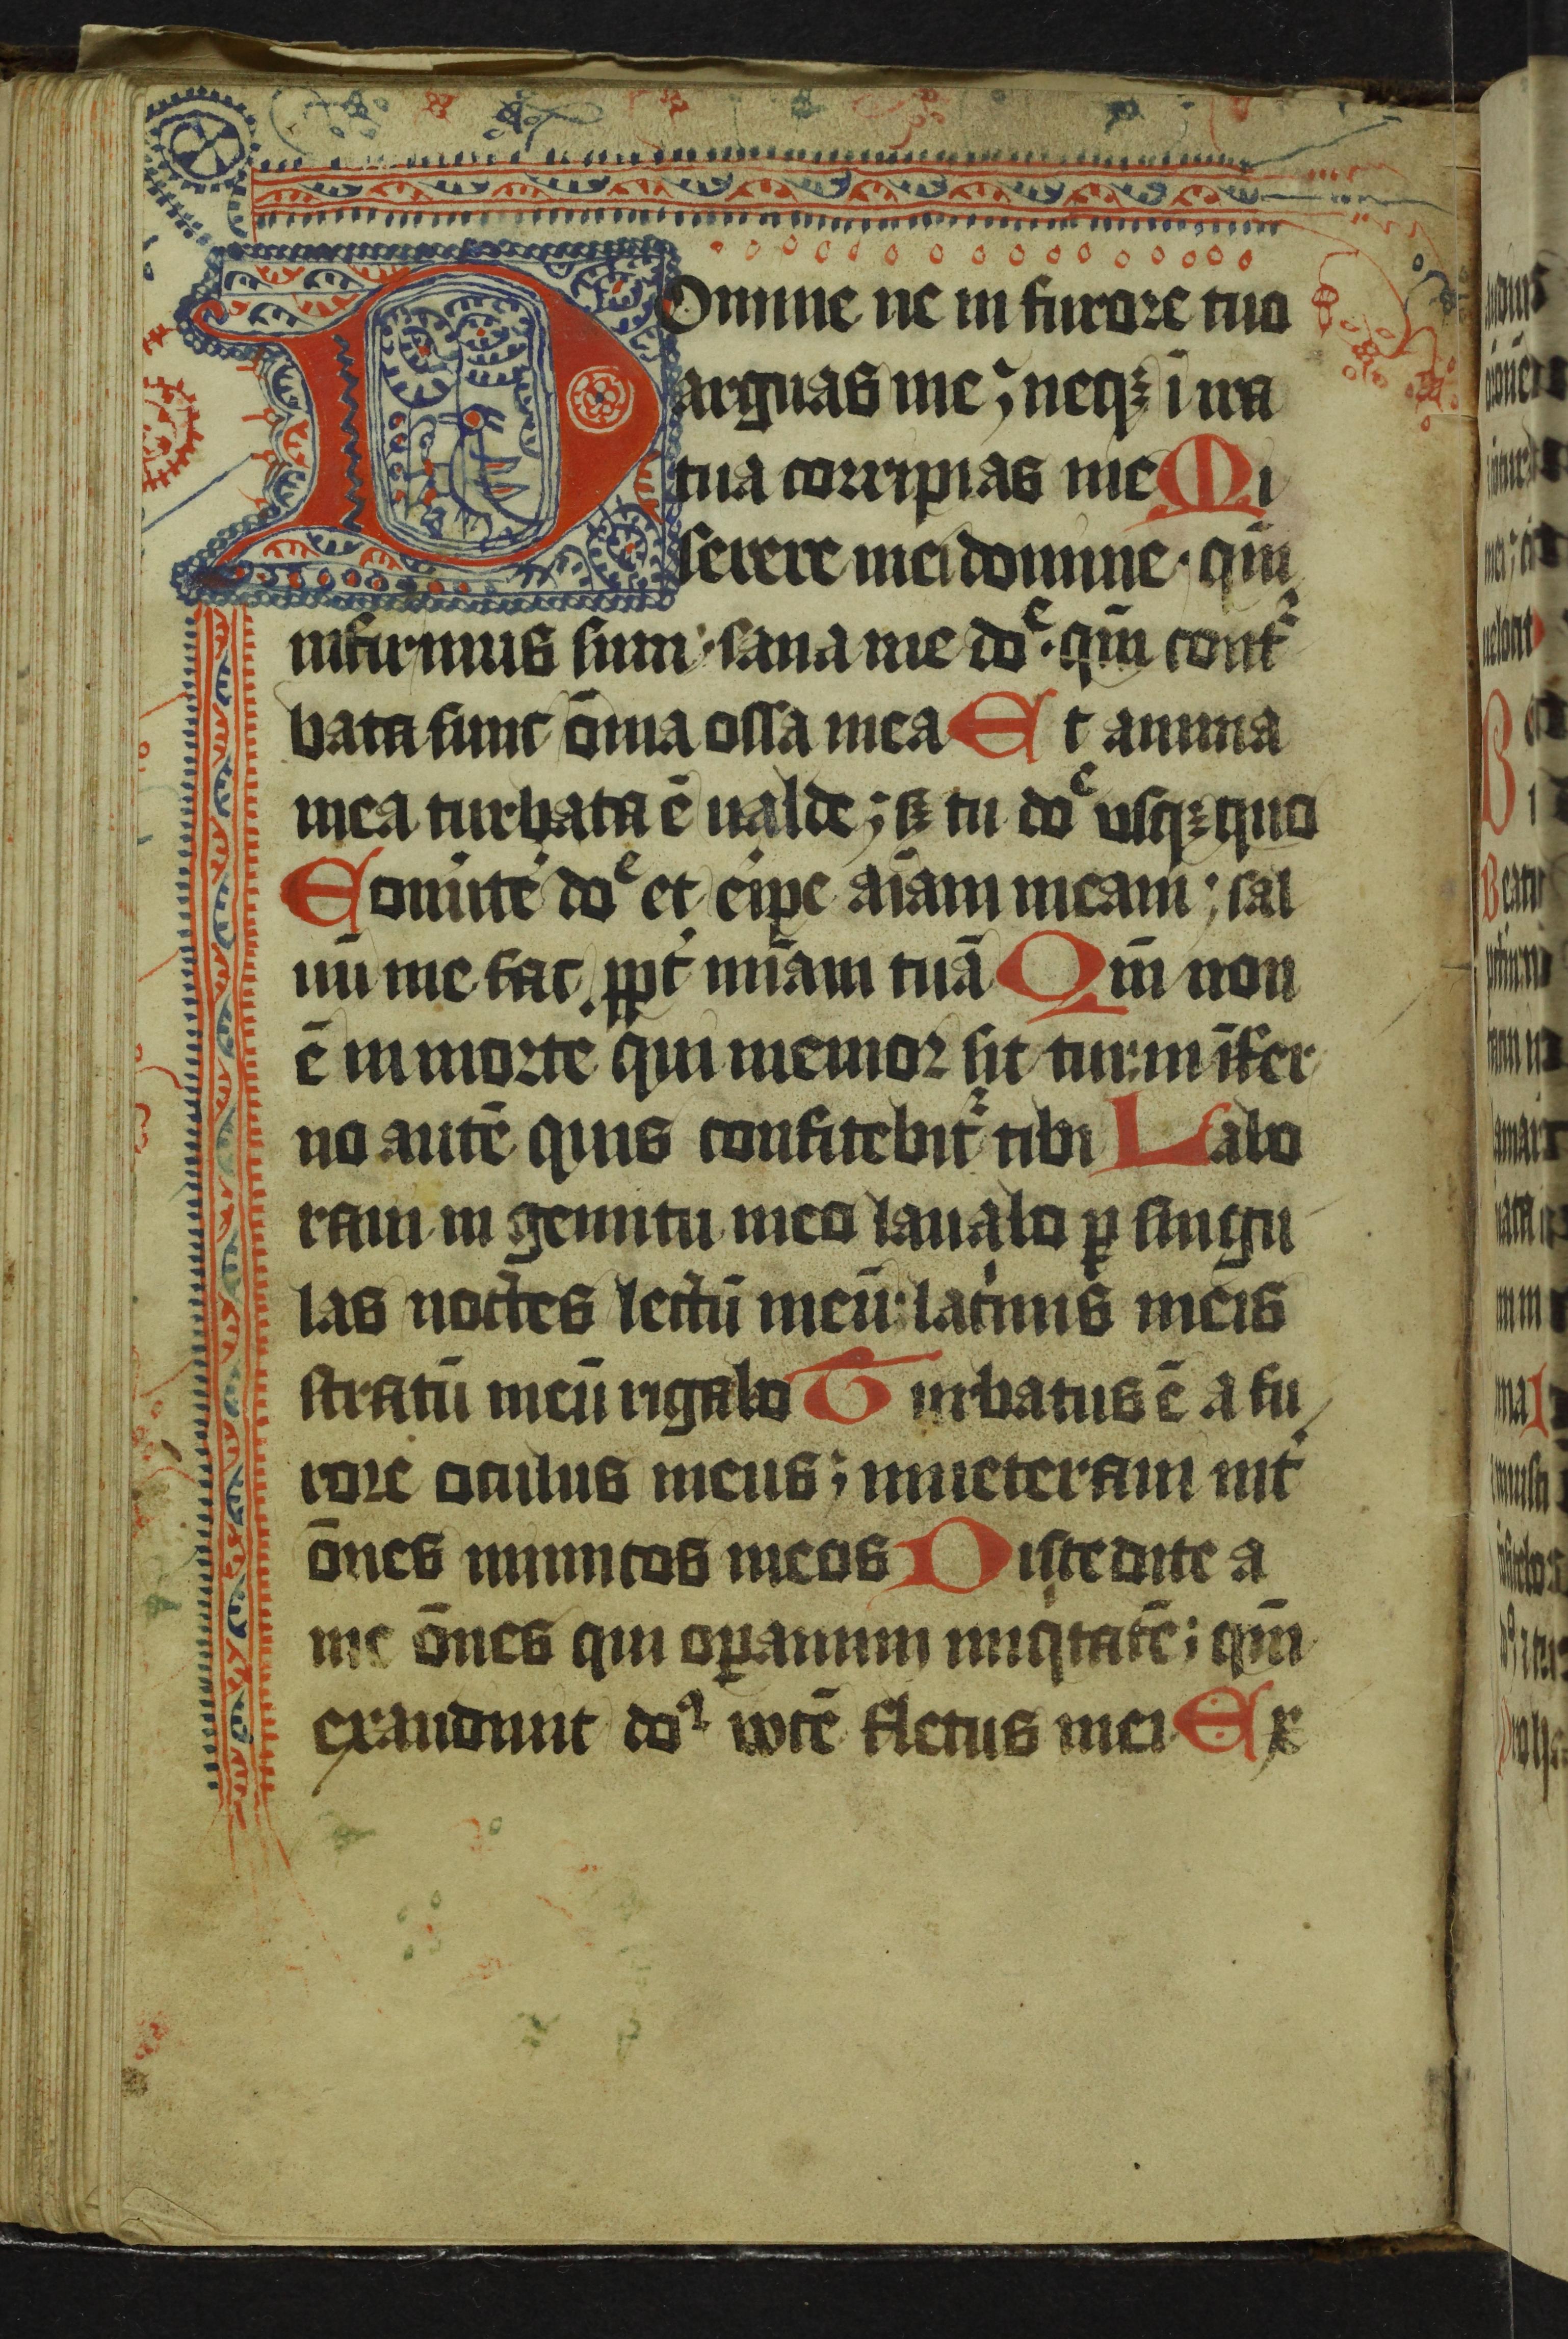 Domine ne in furore tuo
arguas me; neqꝫ ī ira
tua corripias me Mi
serere mei domine · qm̄
infirmus sum · sana me doͤ · qm̄ cont᷑
bata sunt ōmia ossa mea Et anima
mea turbata ē ualde; sꝫ tu doͤ usqꝫ quo
Conuite doͤ et eipe aīam meam; sal
uū me fac ꝓpt᷑ mīam tuā Qm̄ non
ē in morte qui memor sit tui: in īfer
no autē quis confitebit᷑ tibi Labo
raui in gemitu meo lauabo ꝑ singu
las noctes lectū meū: lac̓mis meis
stratū meū rigabo Turbatus ē a fu
rore oculus meus; inueteraui int᷑
ōnes inimicos meos Discedite a
me ōnes qui oꝑamini iniqͥtatē; qm̄
exaudiuit doꝰ uocē fletus mei Ex